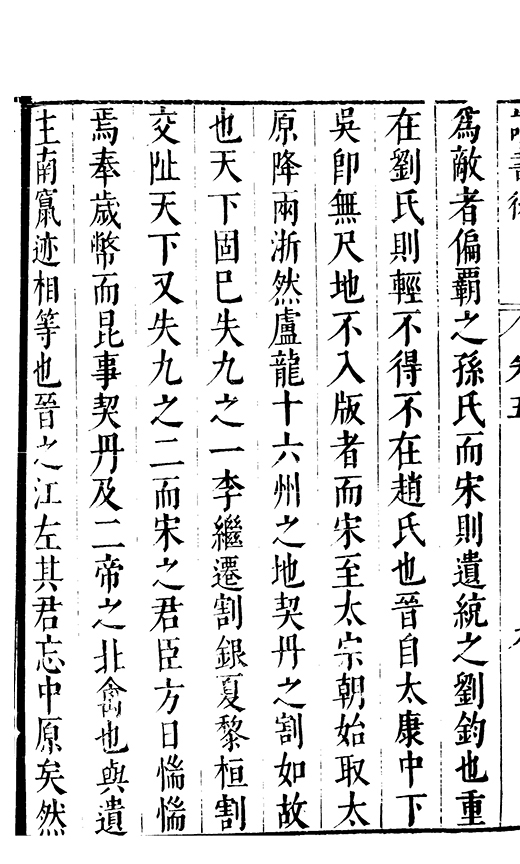 爲敵者偏霸之孫氏而宋則遺統之劉鈞也重
在劉氏則輕不得不在趙氏也晉自太康中下
吳卽無尺地不入版者而宋至太宗朝始取太
原降兩浙然盧龍十六州之地契丹之割如故
也天下固巳失九之一李繼遷割銀夏黎桓割
交阯天下又失九之二而宋之君臣方日惴惴
焉奉歲幣而昆事契丹及二帝之北禽也與遺
主南竄迹相等也晉之江左其君忘中原矣然